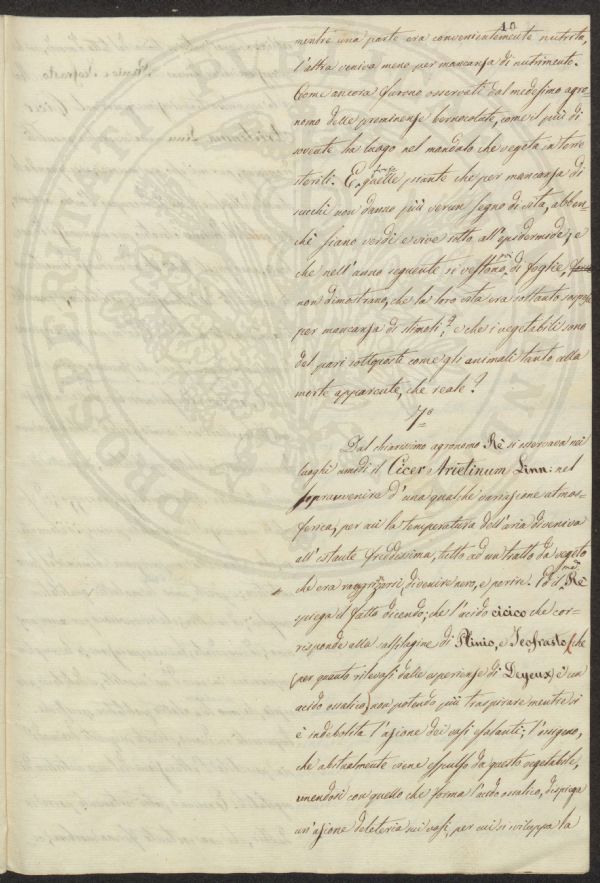 10
mentre una parte era convenientemente nutrita,
l'altra veniva meno per mancanza di nutrimento.
Come ancora furono osservati dal medesimo agro-
nomo delle preminenze bernocolute, come il più di
sovente ha luogo nel mandalo che vegeta in terre
sterili. E quelle piante che per mancanza di
succhi non danno più verun segno di vita, abben-
chè siano verdi e vive sotto all'epidermide, e
che nell'anno seguente si vestono poi di foglie,
non dimostrano, che la loro vita era soltanto sospesa
per mancanza di stimoli,? e che i vegetabili sono
del pari sottoposti come gli animali tanto alla
morte apparente, che reale?
7°
Dal chiarissimo agronomo Rè si osservava nei
luoghi umidi il Cicer Arietinum Linn: nel
sopravvenire d'una qualche variazione atmos-
ferica, per cui la temperatura dell'aria diveniva
all'istante freddissima, tutto ad un tratto da vegeto
che era raggrizzarsi, divenire nero, e perire. Rè
spiega il fatto dicendo; che l'acido cicico che cor-
risponde alla salsilagine di Plinio, e Teofrasto (che
per quanto rilevasi dalle esperienze di Deyeux, è un
acido ossalico) non potendo più traspirare mentre si
è indebolita l'azione dei vasi esalanti; l'ossigeno,
che abitualmente viene espulso da questo vegetabile,
unendosi con quello che forma l'acido ossalico, dispiega
un'azione deleteria sui vasi, per cui si sviluppa la